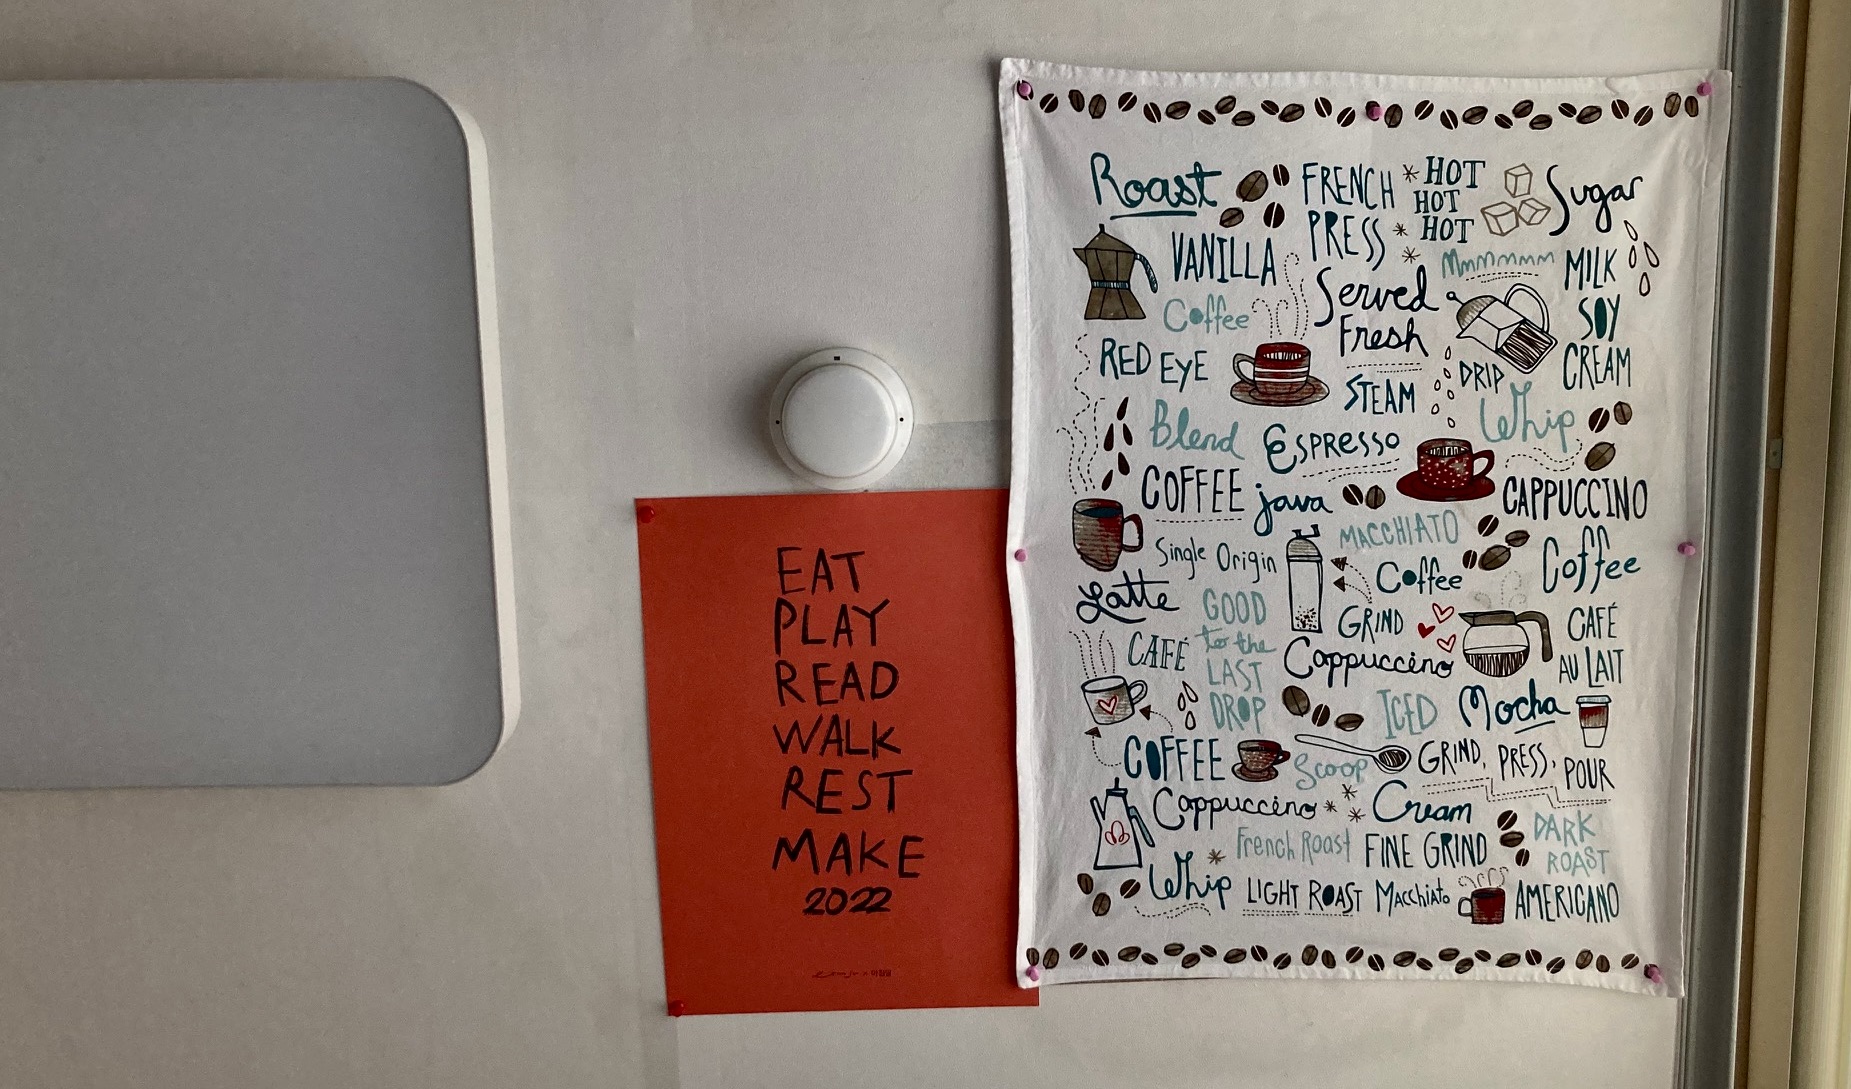 EAT
PLAY
READ
WALK
REST
MAKE
2022
Roast
FRENCH
PRESS
HOT
HOT
HOT
Sugar
VANILLA
Coffee
Served
Fresh
Mmmmmmm
MILK
SOY
CREAM
RED EYE
STEAM
DRIP
Whip
Blend
ESPRESSO
COFFEE
java
CAPPUCCINO
MACCHIATO
Single Origin
Coffee
Coffee
Latte
GOOD
to the
LAST
DROP
GRIND
CAFÉ
AU LAIT
CAFÉ
Cappuccino
ICED
Mocha
COFFEE
Scoop
GRIND, PRESS,
POUR
Cappuccino
Cream
French Roast
FINE GRIND
DARK
ROAST
Whip
LIGHT ROAST
Macchiato
AMERICANO